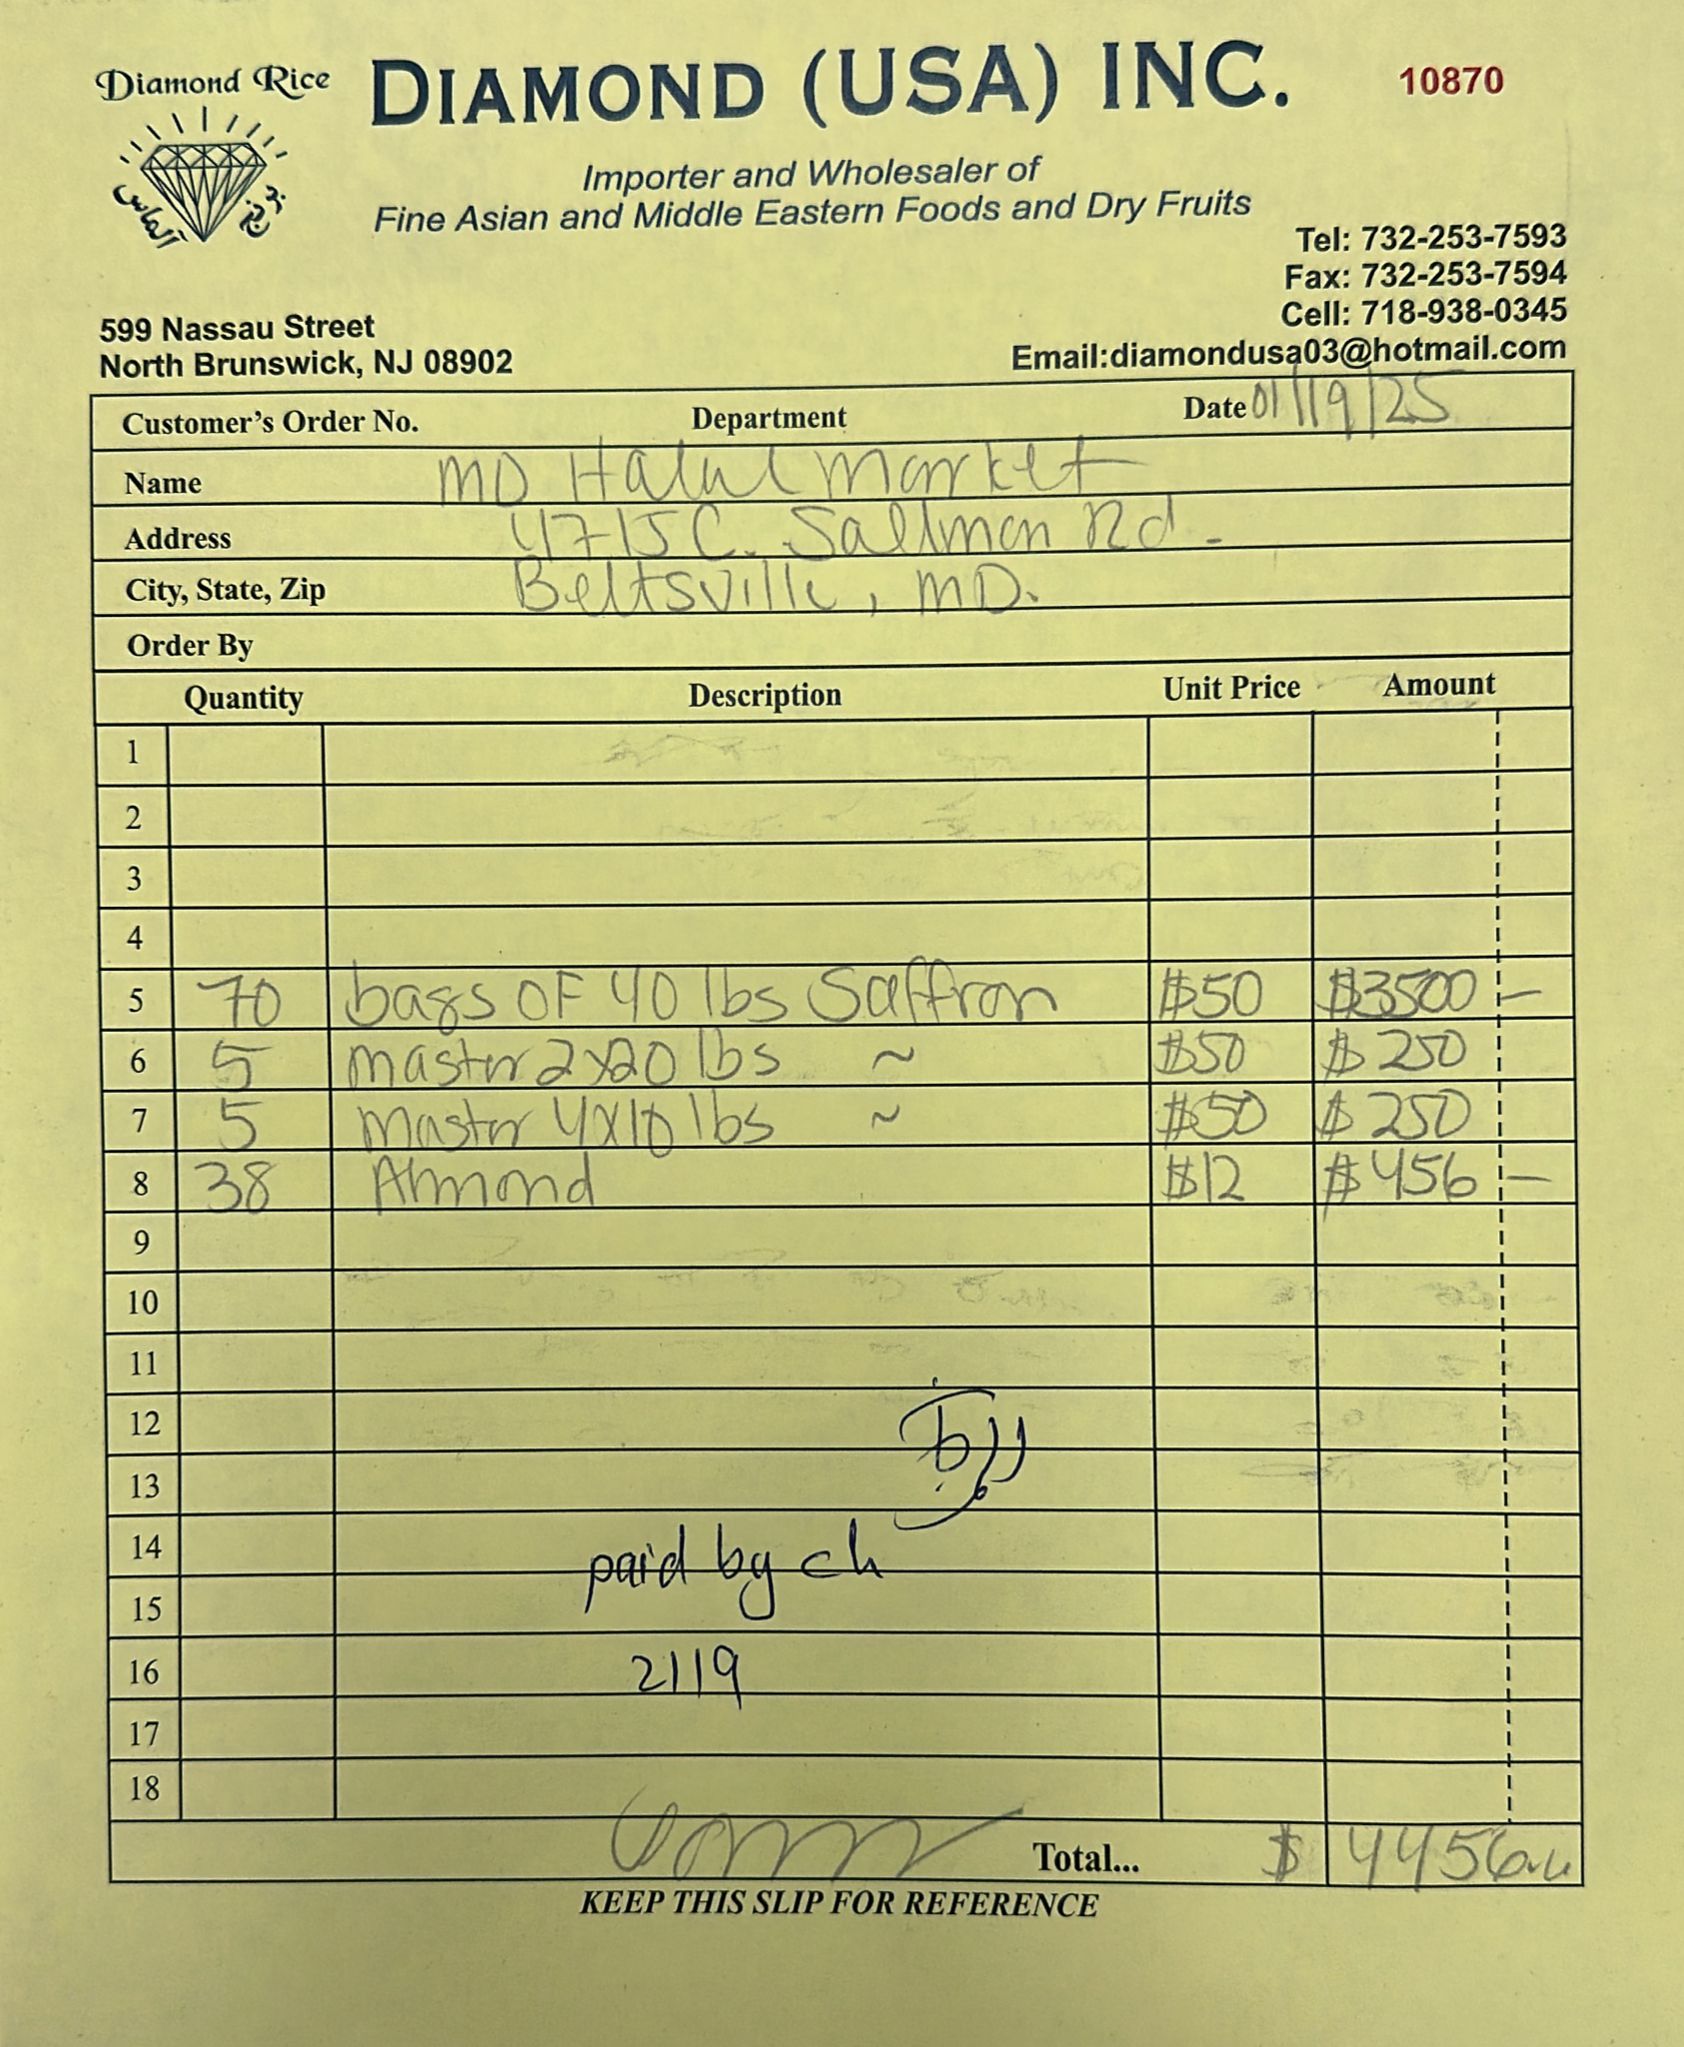 Diamond Rice
DIAMOND (USA) INC.
10870
Importer and Wholesaler of
Fine Asian and Middle Eastern Foods and Dry Fruits
آلماس
برنج
Tel: 732-253-7593
Fax: 732-253-7594
Cell: 718-938-0345
Email:diamondusa03@hotmail.com
599 Nassau Street
North Brunswick, NJ 08902
Customer's Order No. Department Date 01/19/25
Name MD Halal Market
Address 4715 C. Sallmon Rd.
City, State, Zip Beltsville, MD.
Order By
Quantity Description Unit Price Amount
1
2
3
4
5 70 bags OF 40 lbs Saffron $50 $3500 —
6 5 master 2x20 lbs ~ $50 $ 250
7 5 master 4x10 lbs ~ $50 $ 250
8 38 Almond $12 $ 456 —
9
10
11
12
13
14 paid by ch
15
16 2119
17
18
Total... $ 4456
KEEP THIS SLIP FOR REFERENCE